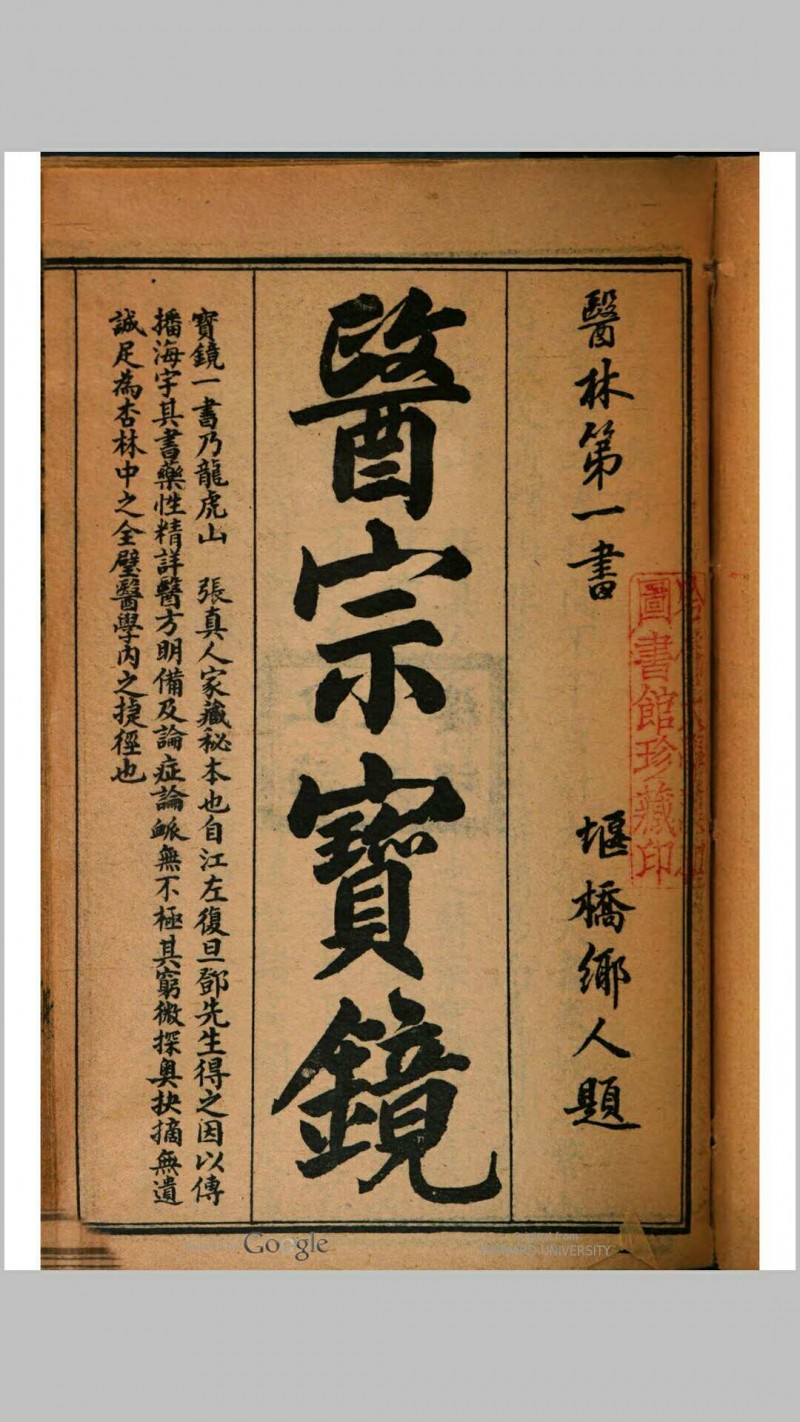 醫林第一書
堰橋鄉人題
醫宗寶鏡
寶鏡一書乃龍虎山 張真人家藏秘本也自江左復旦鄧先生得之因以傳
播海宇其書藥性精詳醫方明備及論症論脈無不極其窮微探奥抉摘無遺
誠足為杏林中之全璧醫學內之捷徑也
圖書館珍藏印
Google
UNIVERSITY